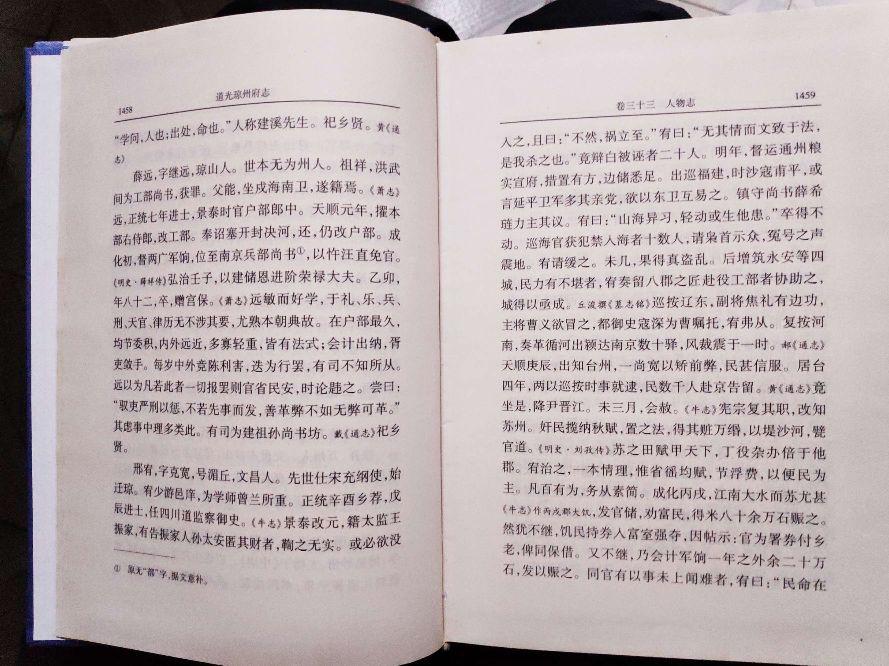 1458
道光琼州府志
“学问，人也；出处，命也。”人称建溪先生。祀乡贤。黄《通
志》
薛远，字继远，琼山人。世本无为州人。祖祥，洪武
间为工部尚书，获罪。父能，坐戍海南卫，遂籍焉。《萧志》
远，正统七年进士，景泰时官户部郎中。天顺元年，擢本
部右侍郎，改工部。奉诏塞开封决河，还，仍改户部。成
化初，督两广军饷，位至南京兵部尚书①，以忤汪直免官。
《明史·薛祥传》弘治壬子，以建储恩进阶荣禄大夫。乙卯，
年八十二，卒，赠宫保。《萧志》远敏而好学，于礼、乐、兵、
刑、天官、律历无不涉其要，尤熟本朝典故。在户部最久，
均节委积，内外远近，多寡轻重，皆有法式；会计出纳，胥
吏敛手。每岁中外竞陈利害，迭为行罢，有司不知所从。
远以为凡若此者一切报罢则官省民安，时论韪之。尝曰：
“驭吏严刑以惩，不若先事而发，善革弊不如无弊可革。”
其虑事中理多类此。有司为建祖孙尚书坊。戴《通志》祀乡
贤。
邢宥，字克宽，号湄丘，文昌人。先世仕宋充纲使，始
迁琼。宥少游邑庠，为学师曾兰所重。正统辛酉乡荐，戊
辰进士，任四川道监察御史。《牛志》景泰改元，籍太监王
振家，有告振家人孙太安匿其财者，鞫之无实。或必欲没
① 原无“部”字，据文意补。
卷三十三 人物志
1459
入之，且曰：“不然，祸立至。”宥曰：“无其情而文致于法，
是我杀之也。”竟辩白被诬者二十人。明年，督运通州粮
实宣府，措置有方，边储悉足。出巡福建，时沙寇甫平，或
言延平卫军多其亲党，欲以东卫互易之。镇守尚书薛希
琏力主其议。宥曰：“山海异习，轻动或生他患。”卒得不
动。巡海官获犯禁入海者十数人，请枭首示众，冤号之声
震地。宥请缓之。未几，果得真盗乱。后增筑永安等四
城，民力有不堪者，宥奏留八郡之匠赴役工部者协助之，
城得以亟成。丘浚撰《墓志铭》巡按辽东，副将焦礼有边功，
主将曹义欲冒之，都御史寇深为曹嘱托，宥弗从。复按河
南，奏革循河出颖达南京数十驿，风裁震于一时。郝《通志》
天顺庚辰，出知台州，一尚宽以矫前弊，民甚信服。居台
四年，两以巡按时事就逮，民数千人赴京告留。黄《通志》竟
坐是，降尹晋江。未三月，会赦。《牛志》宪宗复其职，改知
苏州。奸民揽纳秋赋，置之法，得其赃万缗，以堤沙河，甓
官道。《明史·刘孜传》苏之田赋甲天下，丁役杂办倍于他
郡。宥治之，一本情理，惟省徭均赋，节浮费，以便民为
主。凡百有为，务从素简。成化丙戌，江南大水而苏尤甚
《牛志》作丙戌郡大饥，发官储，劝富民，得米八十余万石赈之。
然犹不继，饥民持券人富室强夺，因帖示：官为署券付乡
老，俾同保借。又不继，乃会计军饷一年之外余二十万
石，发以赈之。同官有以事未上闻难者，宥曰：“民命在